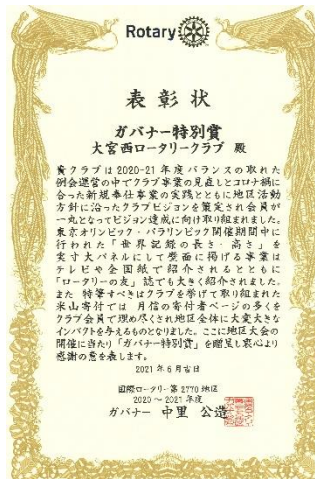 Rotary
表彰状
ガバナー特別賞
大宮西ロータリークラブ 殿
貴クラブは2020-21年度バランスの取れた
例会運営の中でクラブ事業の見直しとコロナ禍に
合った新規奉仕事業の実践とともに地区活動
方針に沿ったクラブビジョンを策定され会員が
一丸となってビジョン達成に向け取り組まれました。
東京オリンピック・パラリンピック開催期間中に
行われた「世界記録の長さ・高さ」を
実寸大パネルにして壁面に掲げる事業は
テレビや全国紙で紹介されるとともに
「ロータリーの友」誌でも大きく紹介されました。
また 特筆すべきはクラブを挙げて取り組まれた
米山寄付では 月信の寄付者ページの多くを
クラブ会員で埋め尽くされ地区全体に大変大きな
インパクトを与えるものとなりました。ここに地区大会の
開催に当たり「ガバナー特別賞」を贈呈し衷心より
感謝の意を表します。
2021年6月吉日
国際ロータリー第2770地区
2020～2021年度
ガバナー 中里 公造